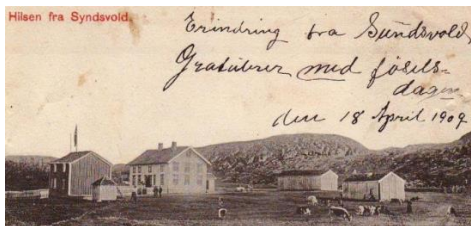 Hilsen fra Syndsvold.
Erindring fra Sundsvold
Gratulerer med føsels-
dagen
den 18 April 1909